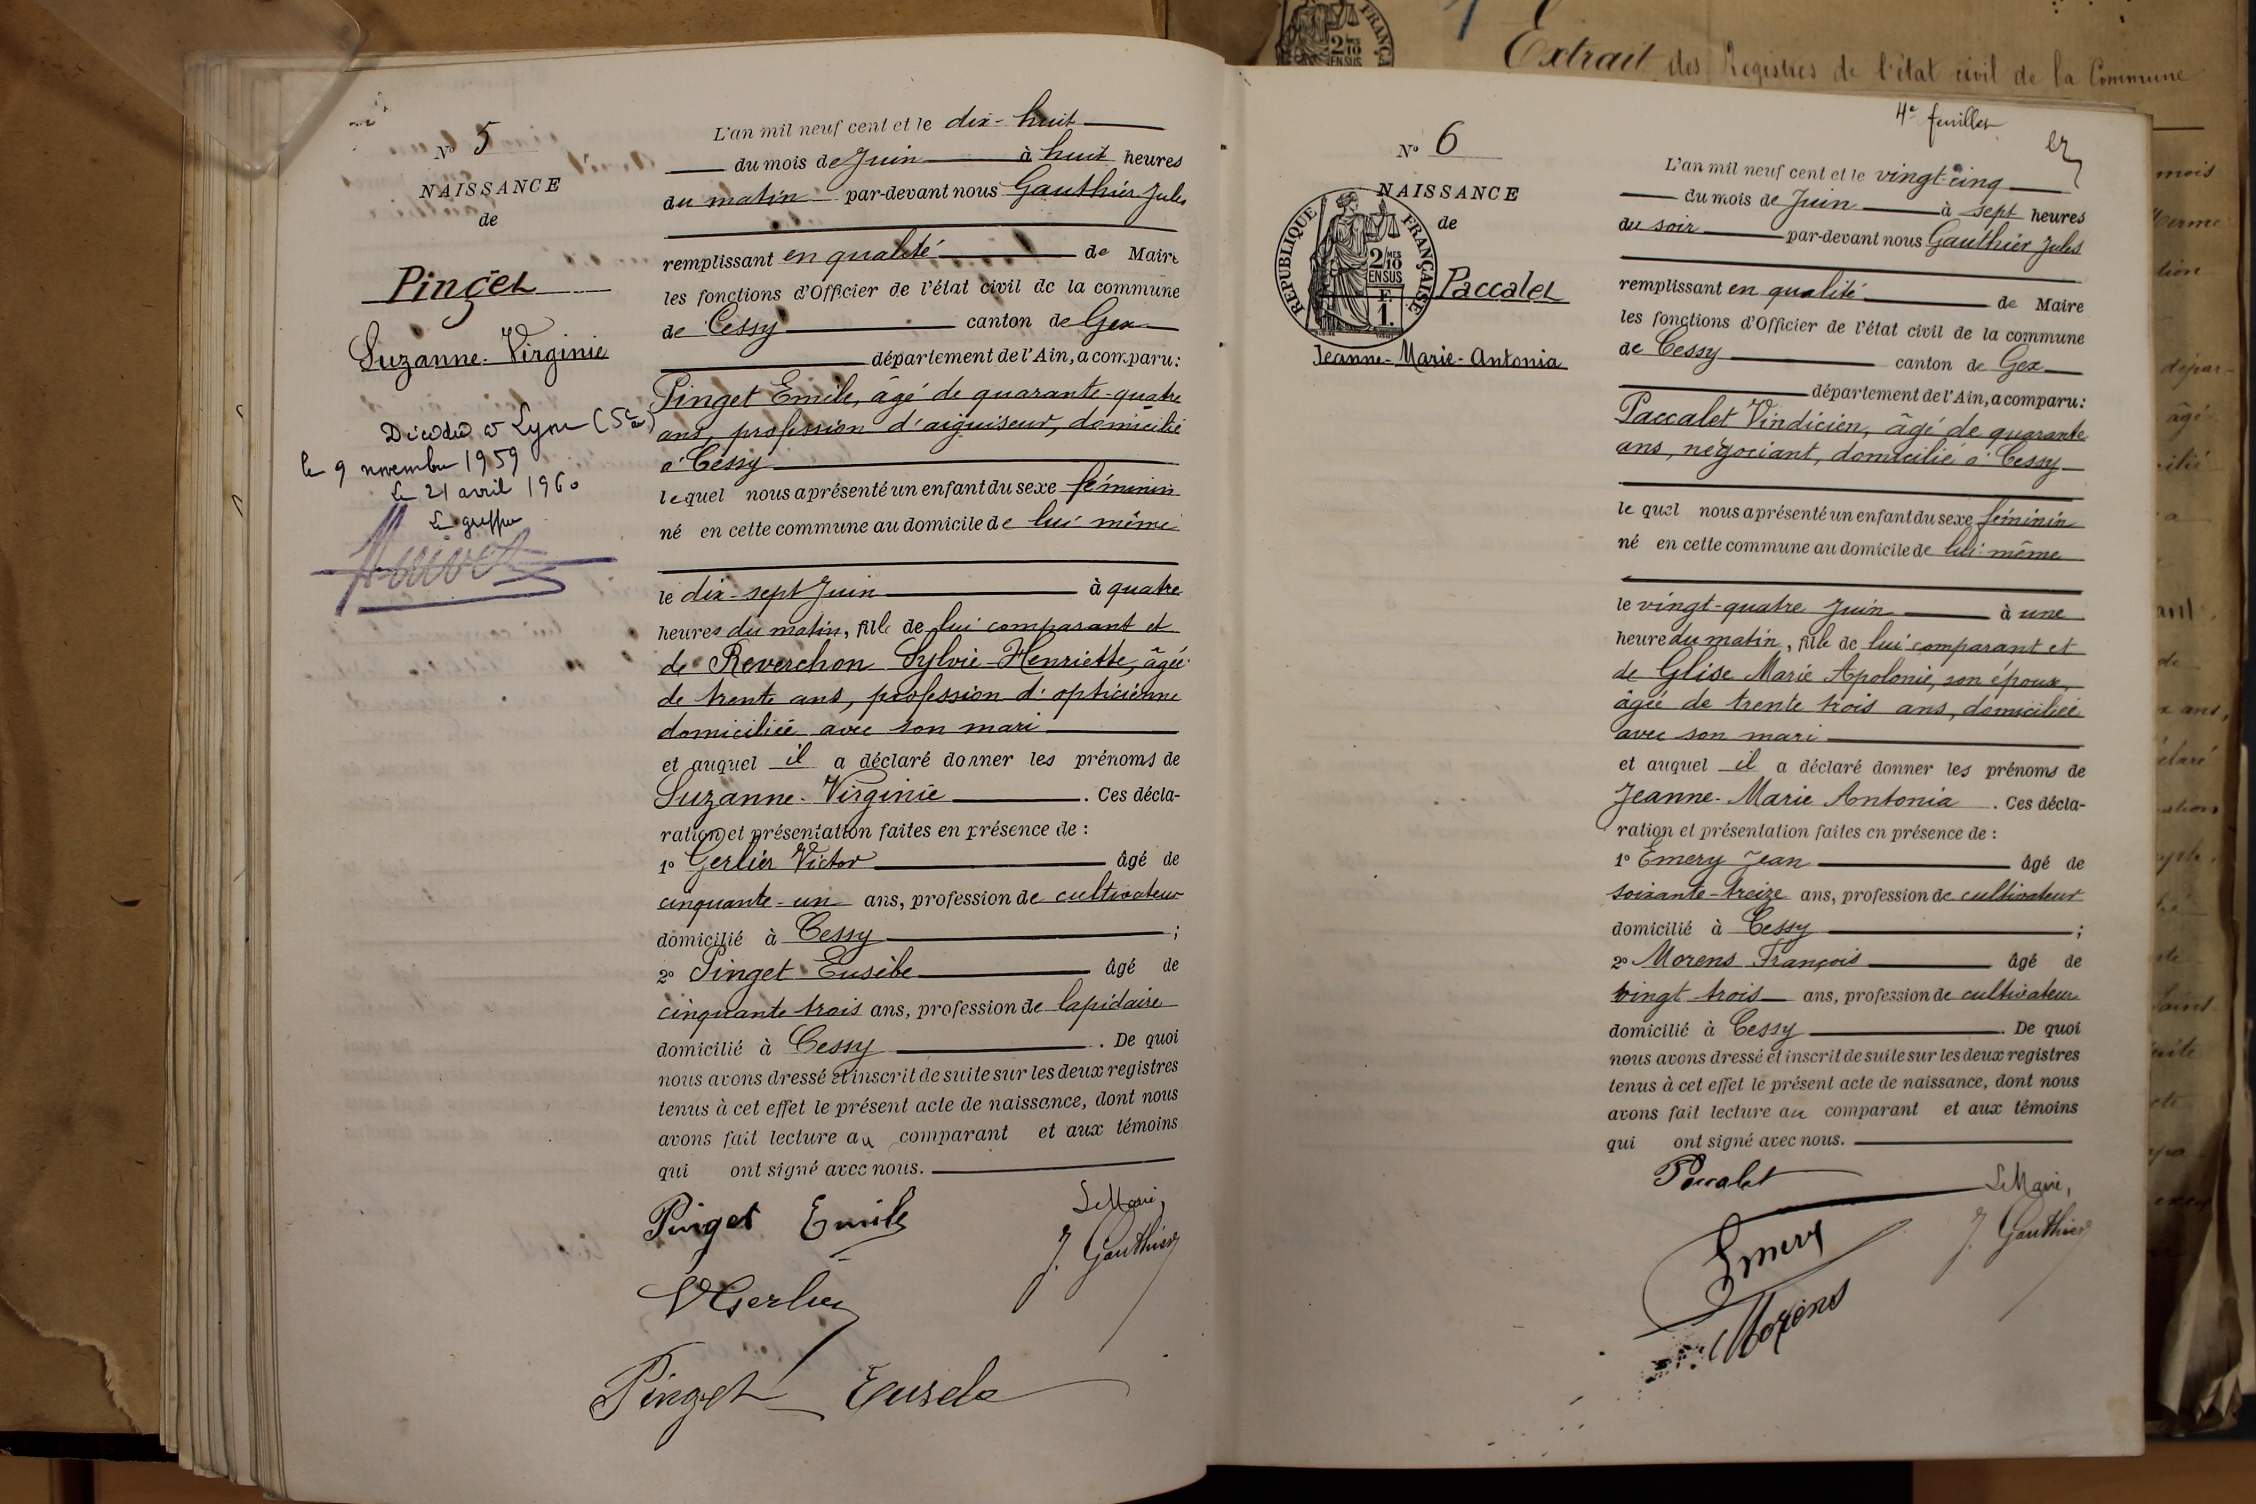 N° 5
NAISSANCE
de
Pinget
Suzanne-Virginie
Décédée à Lyon (5e)
le 9 novembre 1959
Le 21 avril 1960
Le greffier
L'an mil neuf cent et le dix-huit
du mois de Juin à huit heures
du matin par-devant nous Gauthier Jules
remplissant en qualité de Maire
les fonctions d'Officier de l'état civil de la commune
de Cessy canton de Gex
département de l'Ain, a comparu:
Pinget Emile, âgé de quarante-quatre
ans, profession d'aiguiseur, domicilié
à Cessy
lequel nous a présenté un enfant du sexe féminin
né en cette commune au domicile de lui même
le dix-sept Juin à quatre
heures du matin, fille de lui comparant et
de Reverchon Sylvie-Henriette, âgée
de trente ans, profession d'opticienne
domiciliée avec son mari
et auquel il a déclaré donner les prénoms de
Suzanne-Virginie. Ces décla-
ration et présentation faites en présence de :
1° Gerlier Victor âgé de
cinquante-un ans, profession de cultivateur
domicilié à Cessy ;
2° Pinget Eusèbe âgé de
cinquante trois ans, profession de lapidaire
domicilié à Cessy. De quoi
nous avons dressé et inscrit de suite sur les deux registres
tenus à cet effet le présent acte de naissance, dont nous
avons fait lecture au comparant et aux témoins
qui ont signé avec nous.
Pinget Emile
Le Maire,
J. Gauthier
V Gerlier
Pinget Eusebe
Extrait des Registres de l'état civil de la Commune
4e feuillet
N° 6
NAISSANCE
de
REPUBLIQUE FRANÇAISE
2/10MES
EN SUS
F.
1.
Paccalet
Jeanne-Marie-Antonia
L'an mil neuf cent et le vingt-cinq
du mois de Juin à sept heures
du soir par-devant nous Gauthier Jules
remplissant en qualité de Maire
les fonctions d'Officier de l'état civil de la commune
de Cessy canton de Gex
département de l'Ain, a comparu:
Paccalet Vindicien, âgé de quarante
ans, négociant, domicilié à Cessy
le quel nous a présenté un enfant du sexe féminin
né en cette commune au domicile de lui-même
le vingt-quatre Juin à une
heure du matin, fille de lui comparant et
de Glise Marie Apolonie, son épouse,
âgée de trente trois ans, domiciliée
avec son mari
et auquel il a déclaré donner les prénoms de
Jeanne-Marie Antonia. Ces décla-
ration et présentation faites en présence de :
1° Emery Jean âgé de
soixante-treize ans, profession de cultivateur
domicilié à Cessy ;
2° Morens François âgé de
vingt-trois ans, profession de cultivateur
domicilié à Cessy. De quoi
nous avons dressé et inscrit de suite sur les deux registres
tenus à cet effet le présent acte de naissance, dont nous
avons fait lecture au comparant et aux témoins
qui ont signé avec nous.
Paccalet
Le Maire,
J. Gauthier
Emery
Morens